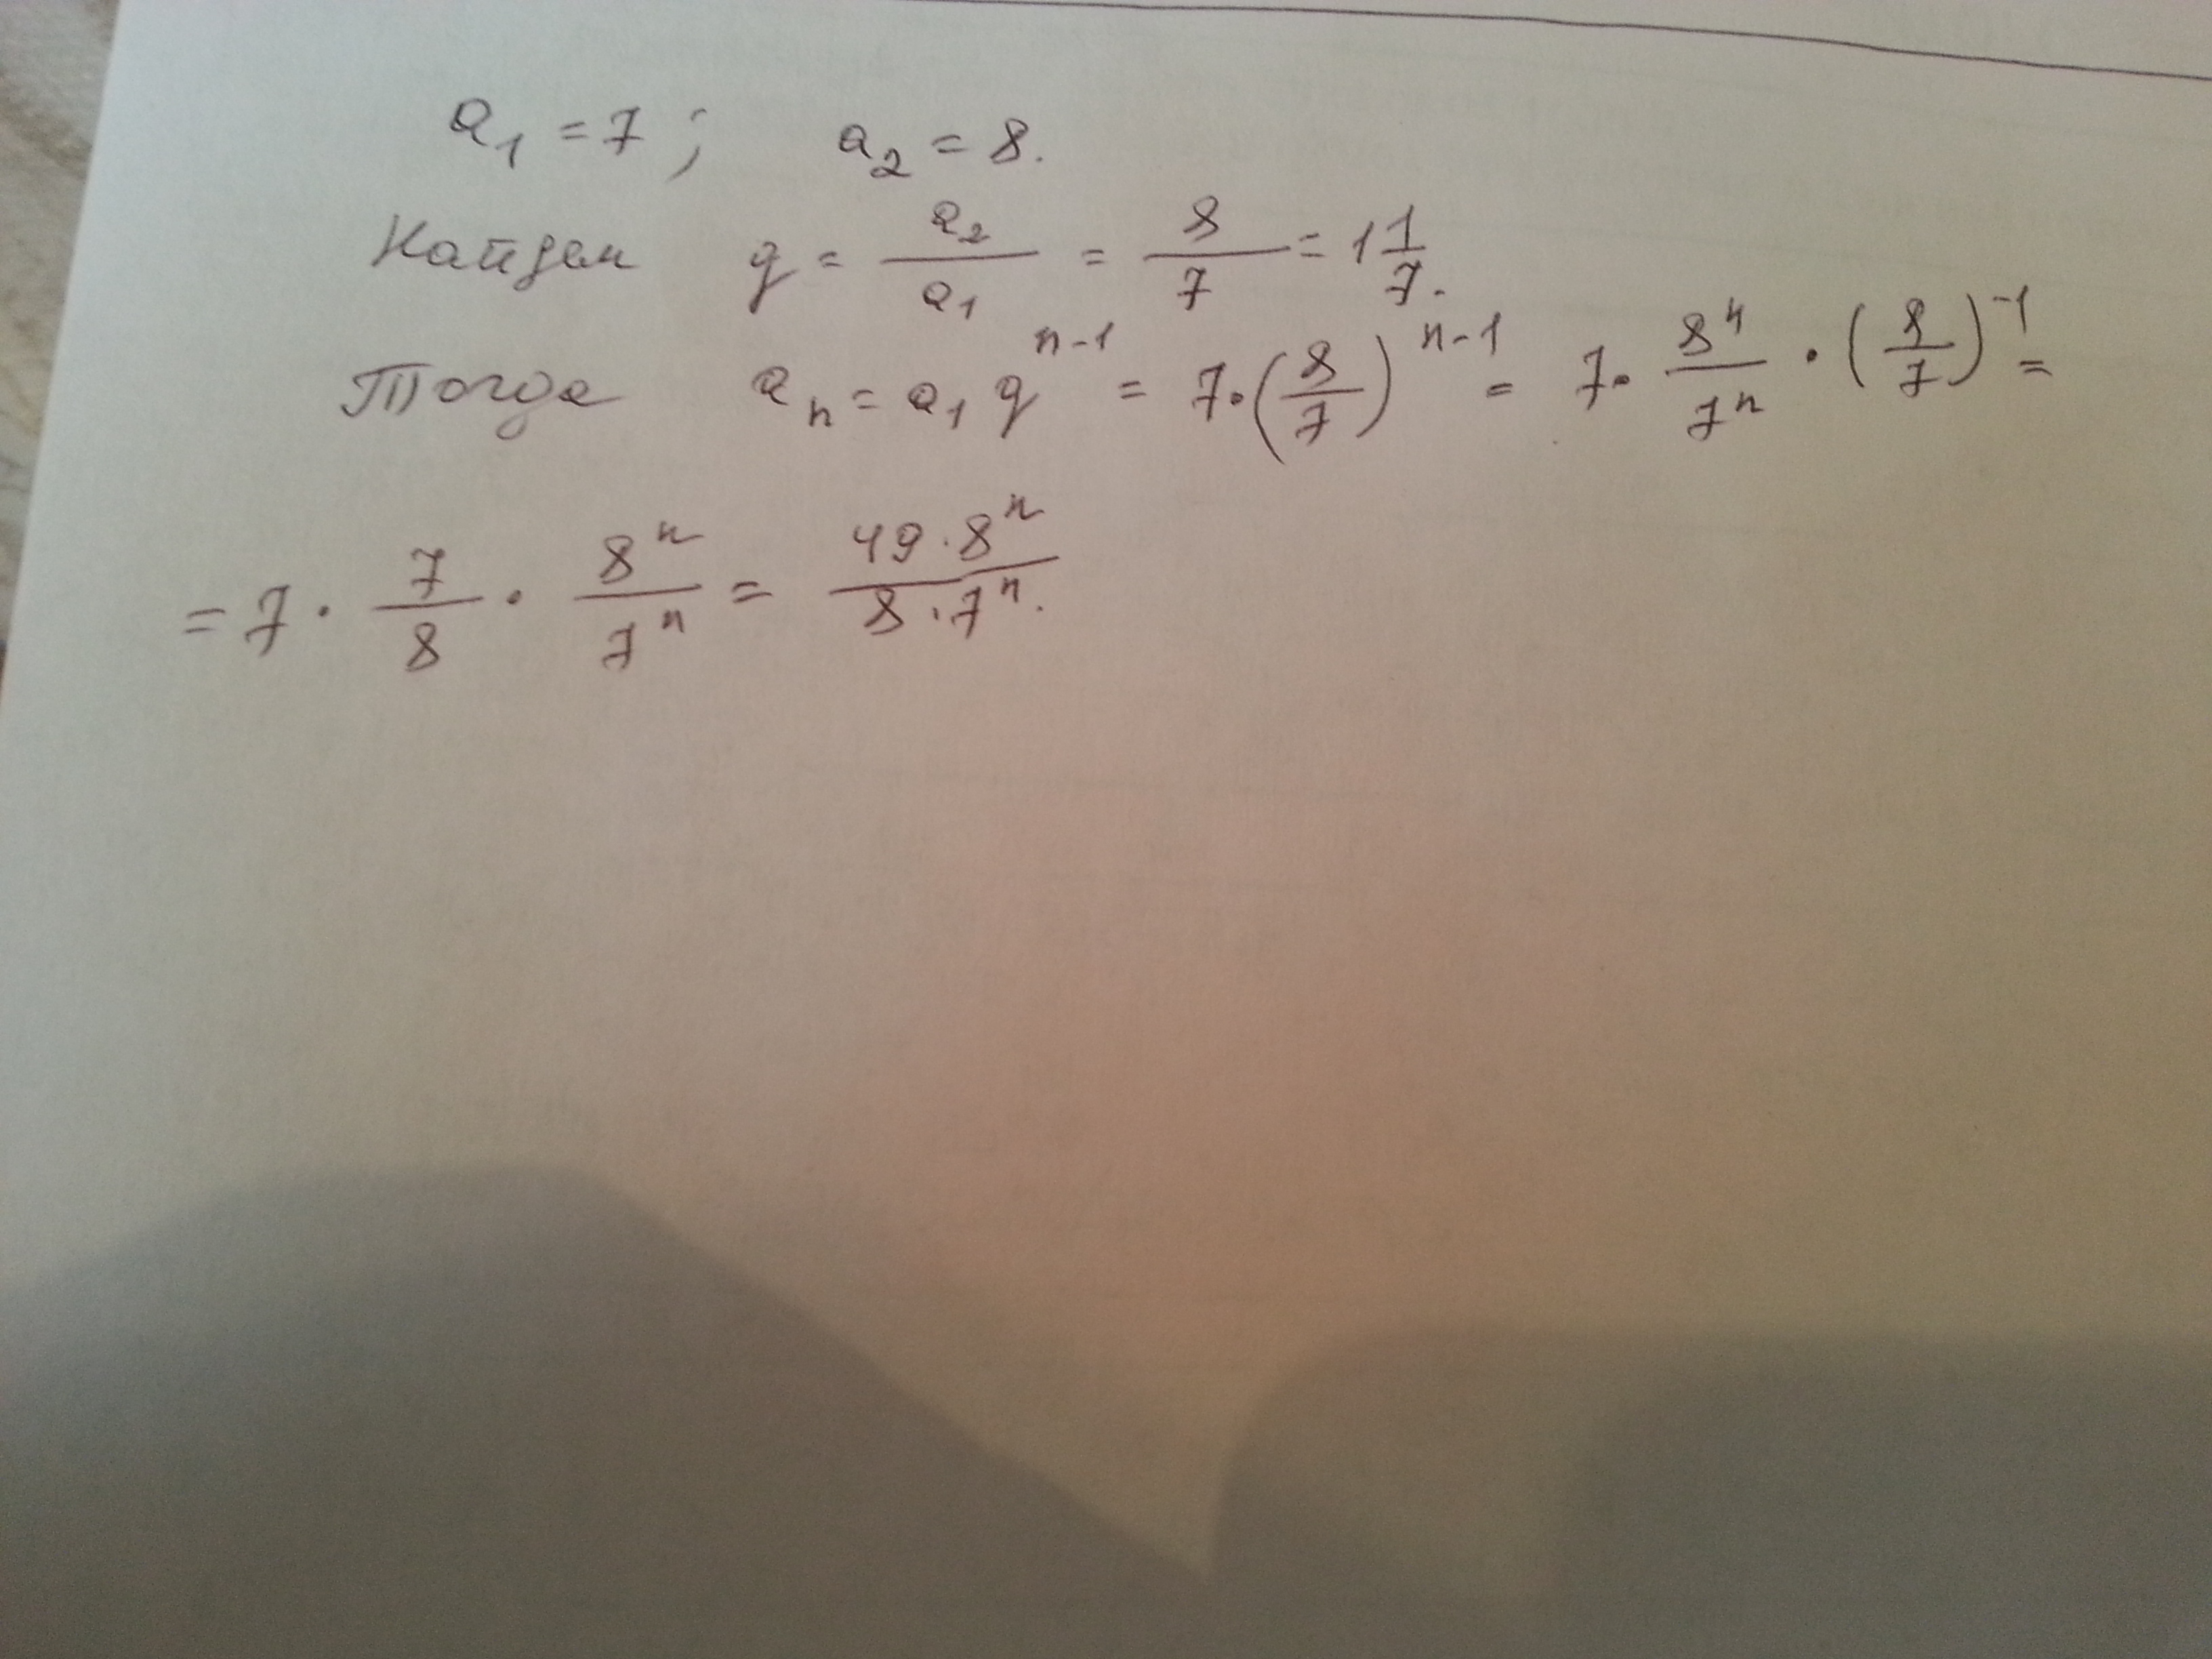 a₁ = 7; a₂ = 8.
Найдем q = a₂/a₁ = 8/7 = 1 1/7.
Тогда aₙ = a₁ q^(n-1) = 7·(8/7)^(n-1) = 7· 8^n/7^n · (8/7)^(-1) =
= 7 · 7/8 · 8^n/7^n = 49·8^n/8·7^n.